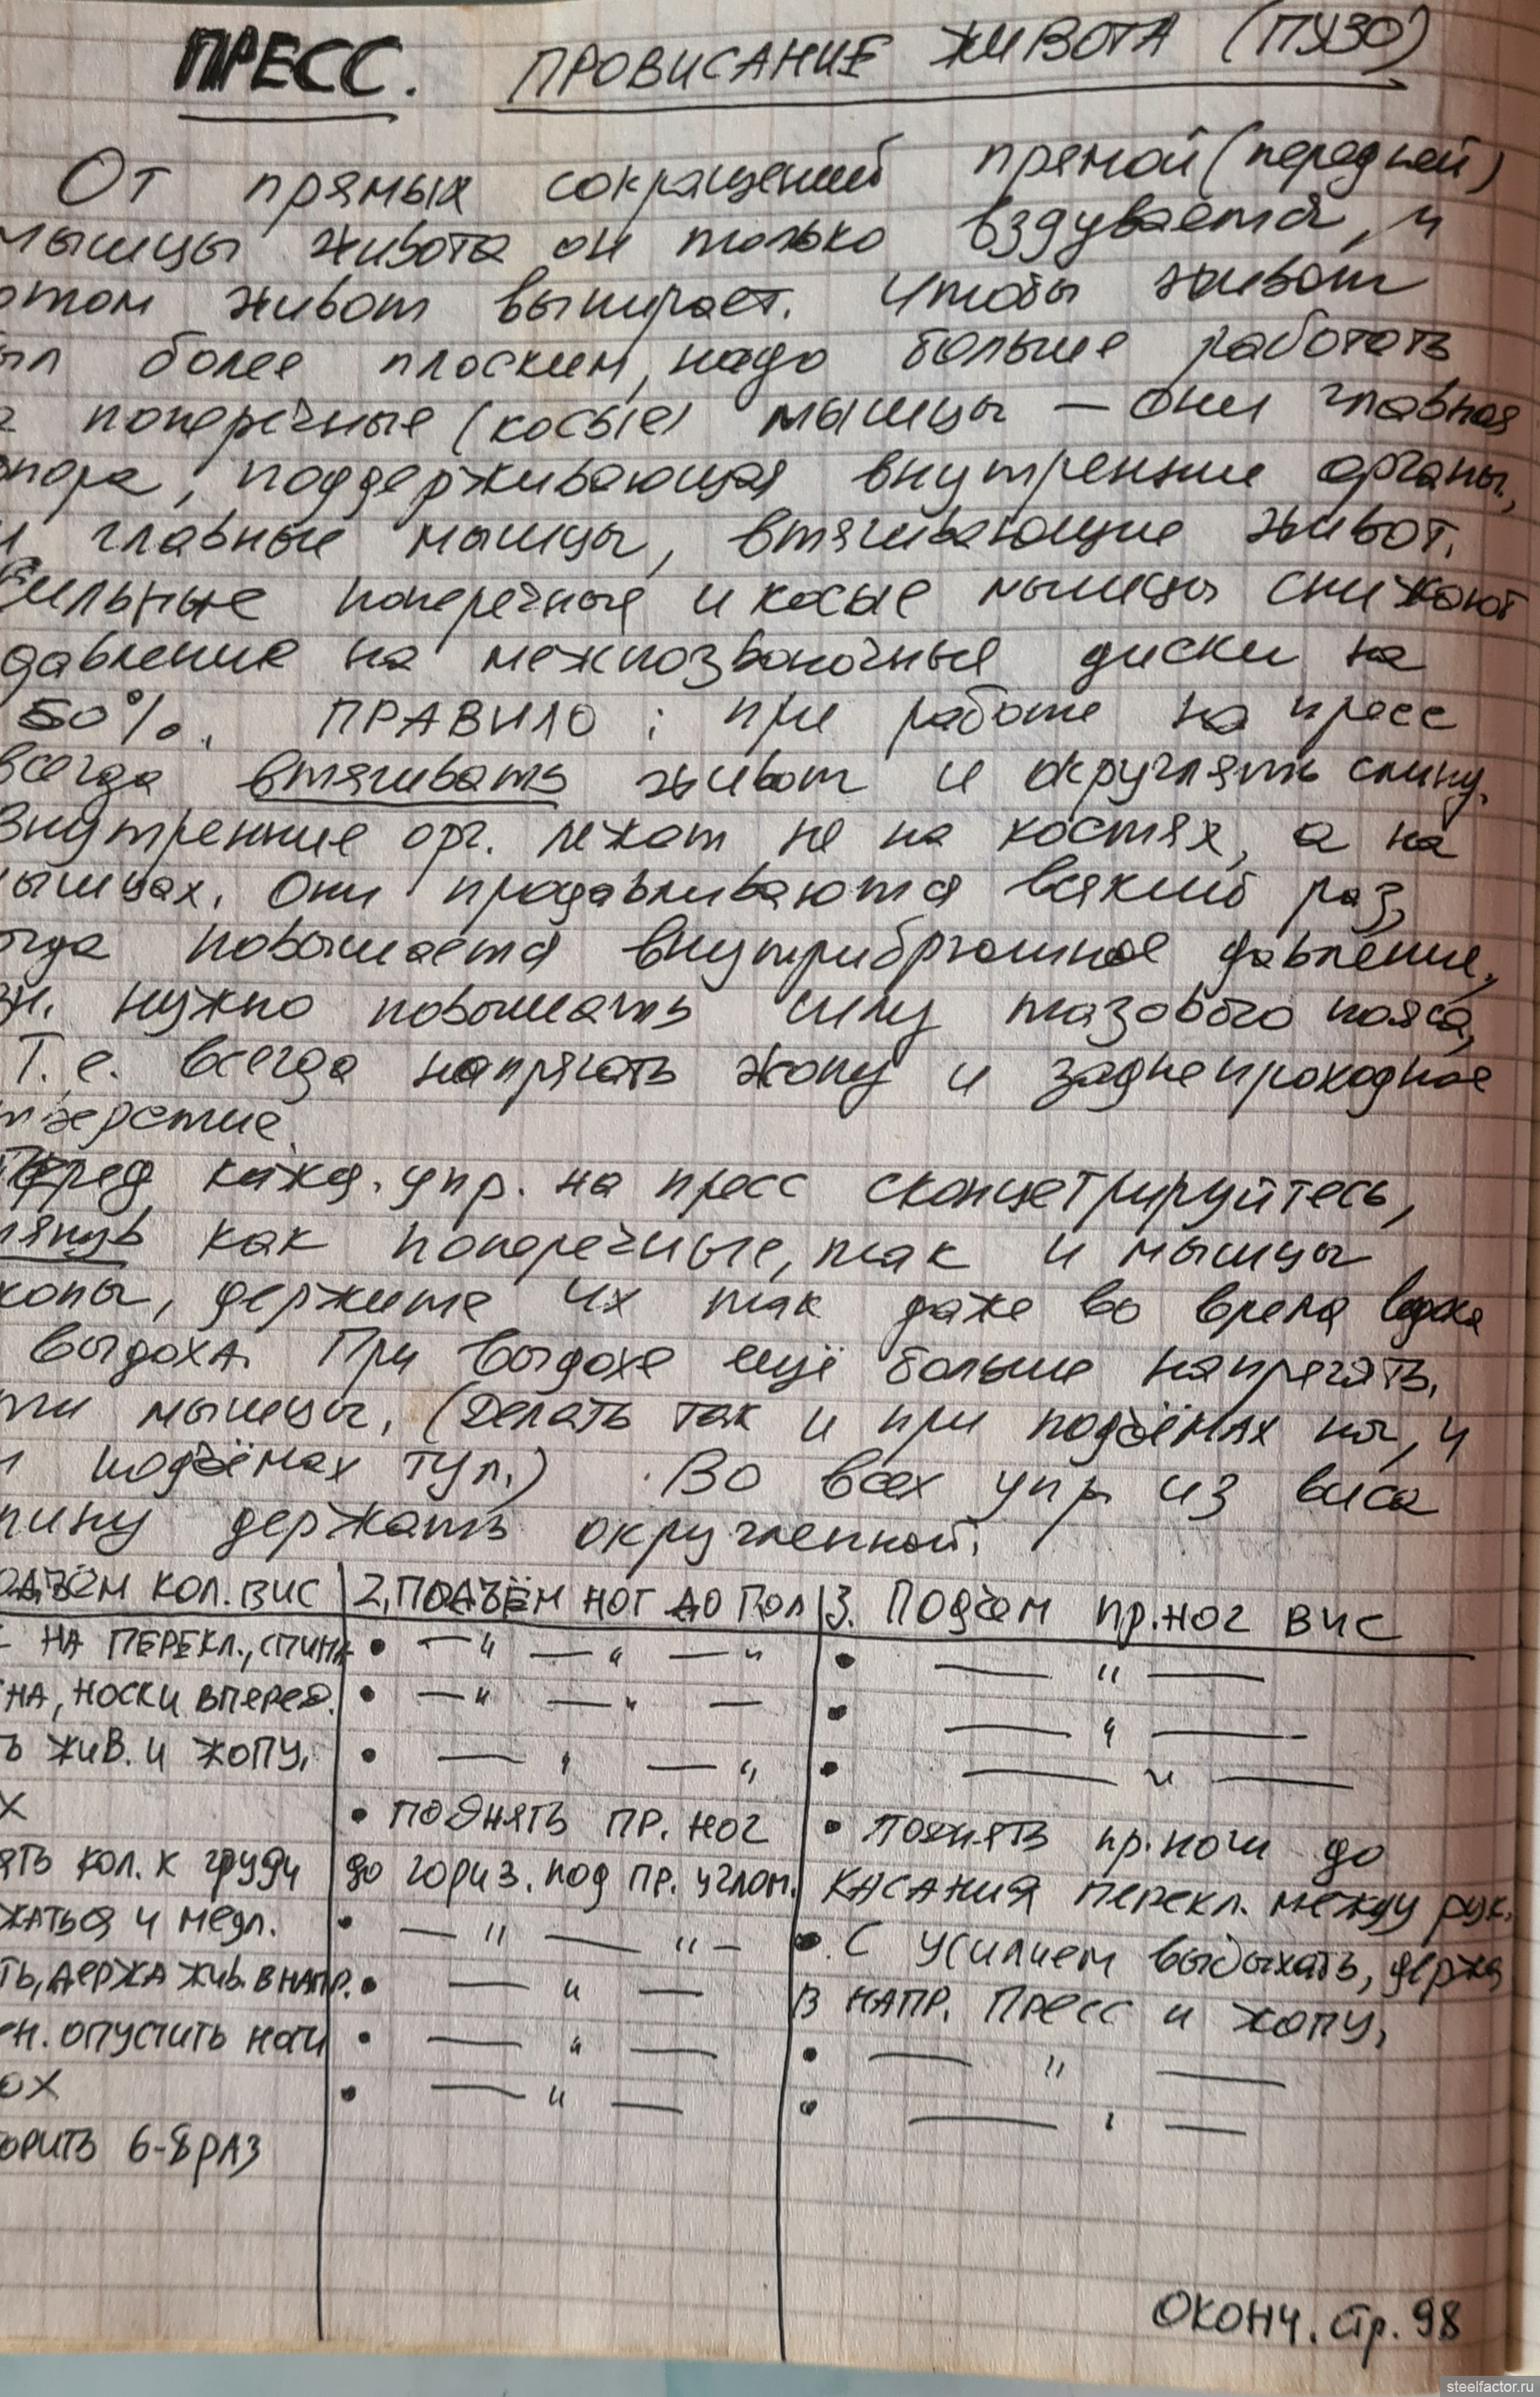 ПРЕСС. ПРОВИСАНИЕ ЖИВОТА (ПУЗО)
От прямых сокращений прямой (передней)
мышцы живота он только вздувается, и
отом живот выпирает. Чтобы живот
ыл более плоским, надо больше работать
а поперечные (косые) мышцы — они главная
пора, поддерживающая внутренние органы,
и главные мышцы, втягивающие живот.
Сильные поперечные и косые мышцы снижают
давление на межпозвоночные диски на
50%. ПРАВИЛО: при работе на пресс
всегда втягивать живот и округлять спину.
Внутренние орг. лежат не на костях, а на
ышцах. Они продавливаются всякий раз,
огда повышается внутрибрюшное давление,
зн. нужно повышать силу тазового пояса,
Т.е. всегда напрягать жопу и заднепроходное
тверстие.
Перед кажд. упр. на пресс сконцетрируйтесь,
тянув как поперечные, так и мышцы
жопы, держите их так даже во время вдоха
выдоха. При выдохе ещё больше напрягать,
ти мышцы, (Делать так и при подъёмах ног, и
и подъёмах тул.) Во всех упр из виса
пину держать округленной.
ОДЪЁМ КОЛ. ВИС | 2, ПОДЪЁМ НОГ ДО ПОЛ | 3. Подъем пр. ног ВИС
НА ПЕРЕКЛ., СПИНА • —"—"—" • —"—
НА, НОСКИ ВПЕРЕД. • —"—"— • —"—
Ь ЖИВ. И ЖОПУ, • —"—" • —"—
Х • ПОДНЯТЬ ПР. НОГ • ПОДНЯТЬ пр. ноги до
ЯТЬ КОЛ. К груди до гориз. под пр. углом. КАСАНИЯ перекл. между рук.
ЖАТЬСЯ И МЕДЛ. • —"—"— • С усилием выдыхать, держа
ТЬ, ДЕРЖА ЖИВ. В НАПР. • —"— В НАПР. ПРЕСС и ЖОПУ,
ЕН. ОПУСТИТЬ НОГИ • —"— • —"—
ОХ • —"— • —"—
ОРИТЬ 6-8 РАЗ
ОКОНЧ. стр. 98
steelfactor.ru